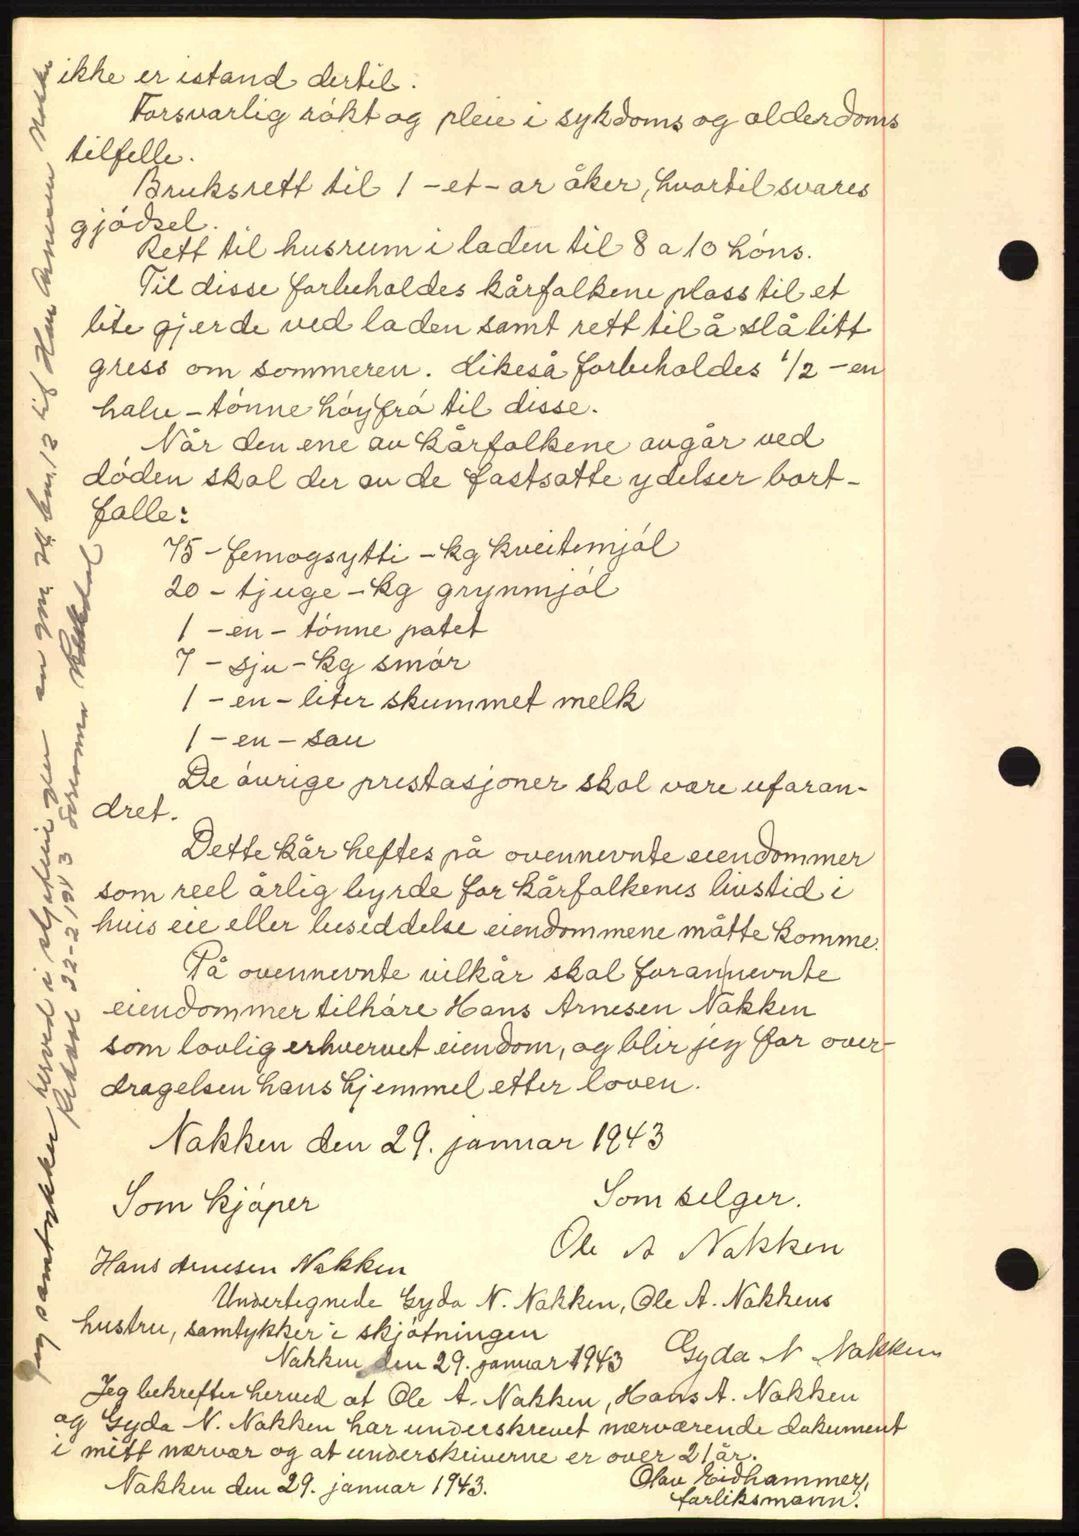 ikke er istand dertil.
Forsvarlig røkt og pleie i sykdoms og alderdoms
tilfelle.
Bruksrett til 1 - et - ar åker, hvortil svares
gjødsel.
Rett til husrum i laden til 8 a 10 høns.
Til disse forbeholdes kårfolkene plass til et
lite gjerde ved laden samt rett til å slå litt
gress om sommeren. Likeså forbeholdes 1/2 - en
halv - tønne høyfrø til disse.
Når den ene av kårfolkene avgår ved
døden skal der av de fastsatte ydelser bort-
falle:
75 - femogsytti - kg kveitemjøl
20 - tjuge - kg grynmjøl
1 - en - tønne potet
7 - sju - kg smør
1 - en - liter skummet melk
1 - en - sau
De øvrige prestasjoner skal være uforan-
dret.
Dette kår heftes på ovennevnte eiendommer
som reel årlig byrde for kårfolkenes livstid i
hvis eie eller besiddelse eiendommene måtte komme.
På ovennevnte vilkår skal forannevnte
eiendommer tilhøre Hans Arnesen Nakken
som lovlig erhvervet eiendom, og blir jeg for over-
dragelsen hans hjemmel etter loven.
Nakken den 29. januar 1943
Som kjøper
Som selger.
Ole A Nakken
Hans Arnesen Nakken
Undertegnede Gyda N. Nakken, Ole A. Nakkens
hustru, samtykker i skjøtningen
Nakken den 29. januar 1943 Gyda N Nakken
Jeg bekrefter herved at Ole A. Nakken, Hans A. Nakken
og Gyda N. Nakken har underskrevet nærværende dokument
i mitt nærvær og at underskriverne er over 21 år.
Nakken den 29. januar 1943.
Olav Eidhammer,
forliksmann.
Jeg samtykker herved i skjøtningen av gnr. 24 bnr. 12 til Hans Arnesen Nakken
22-2 1943